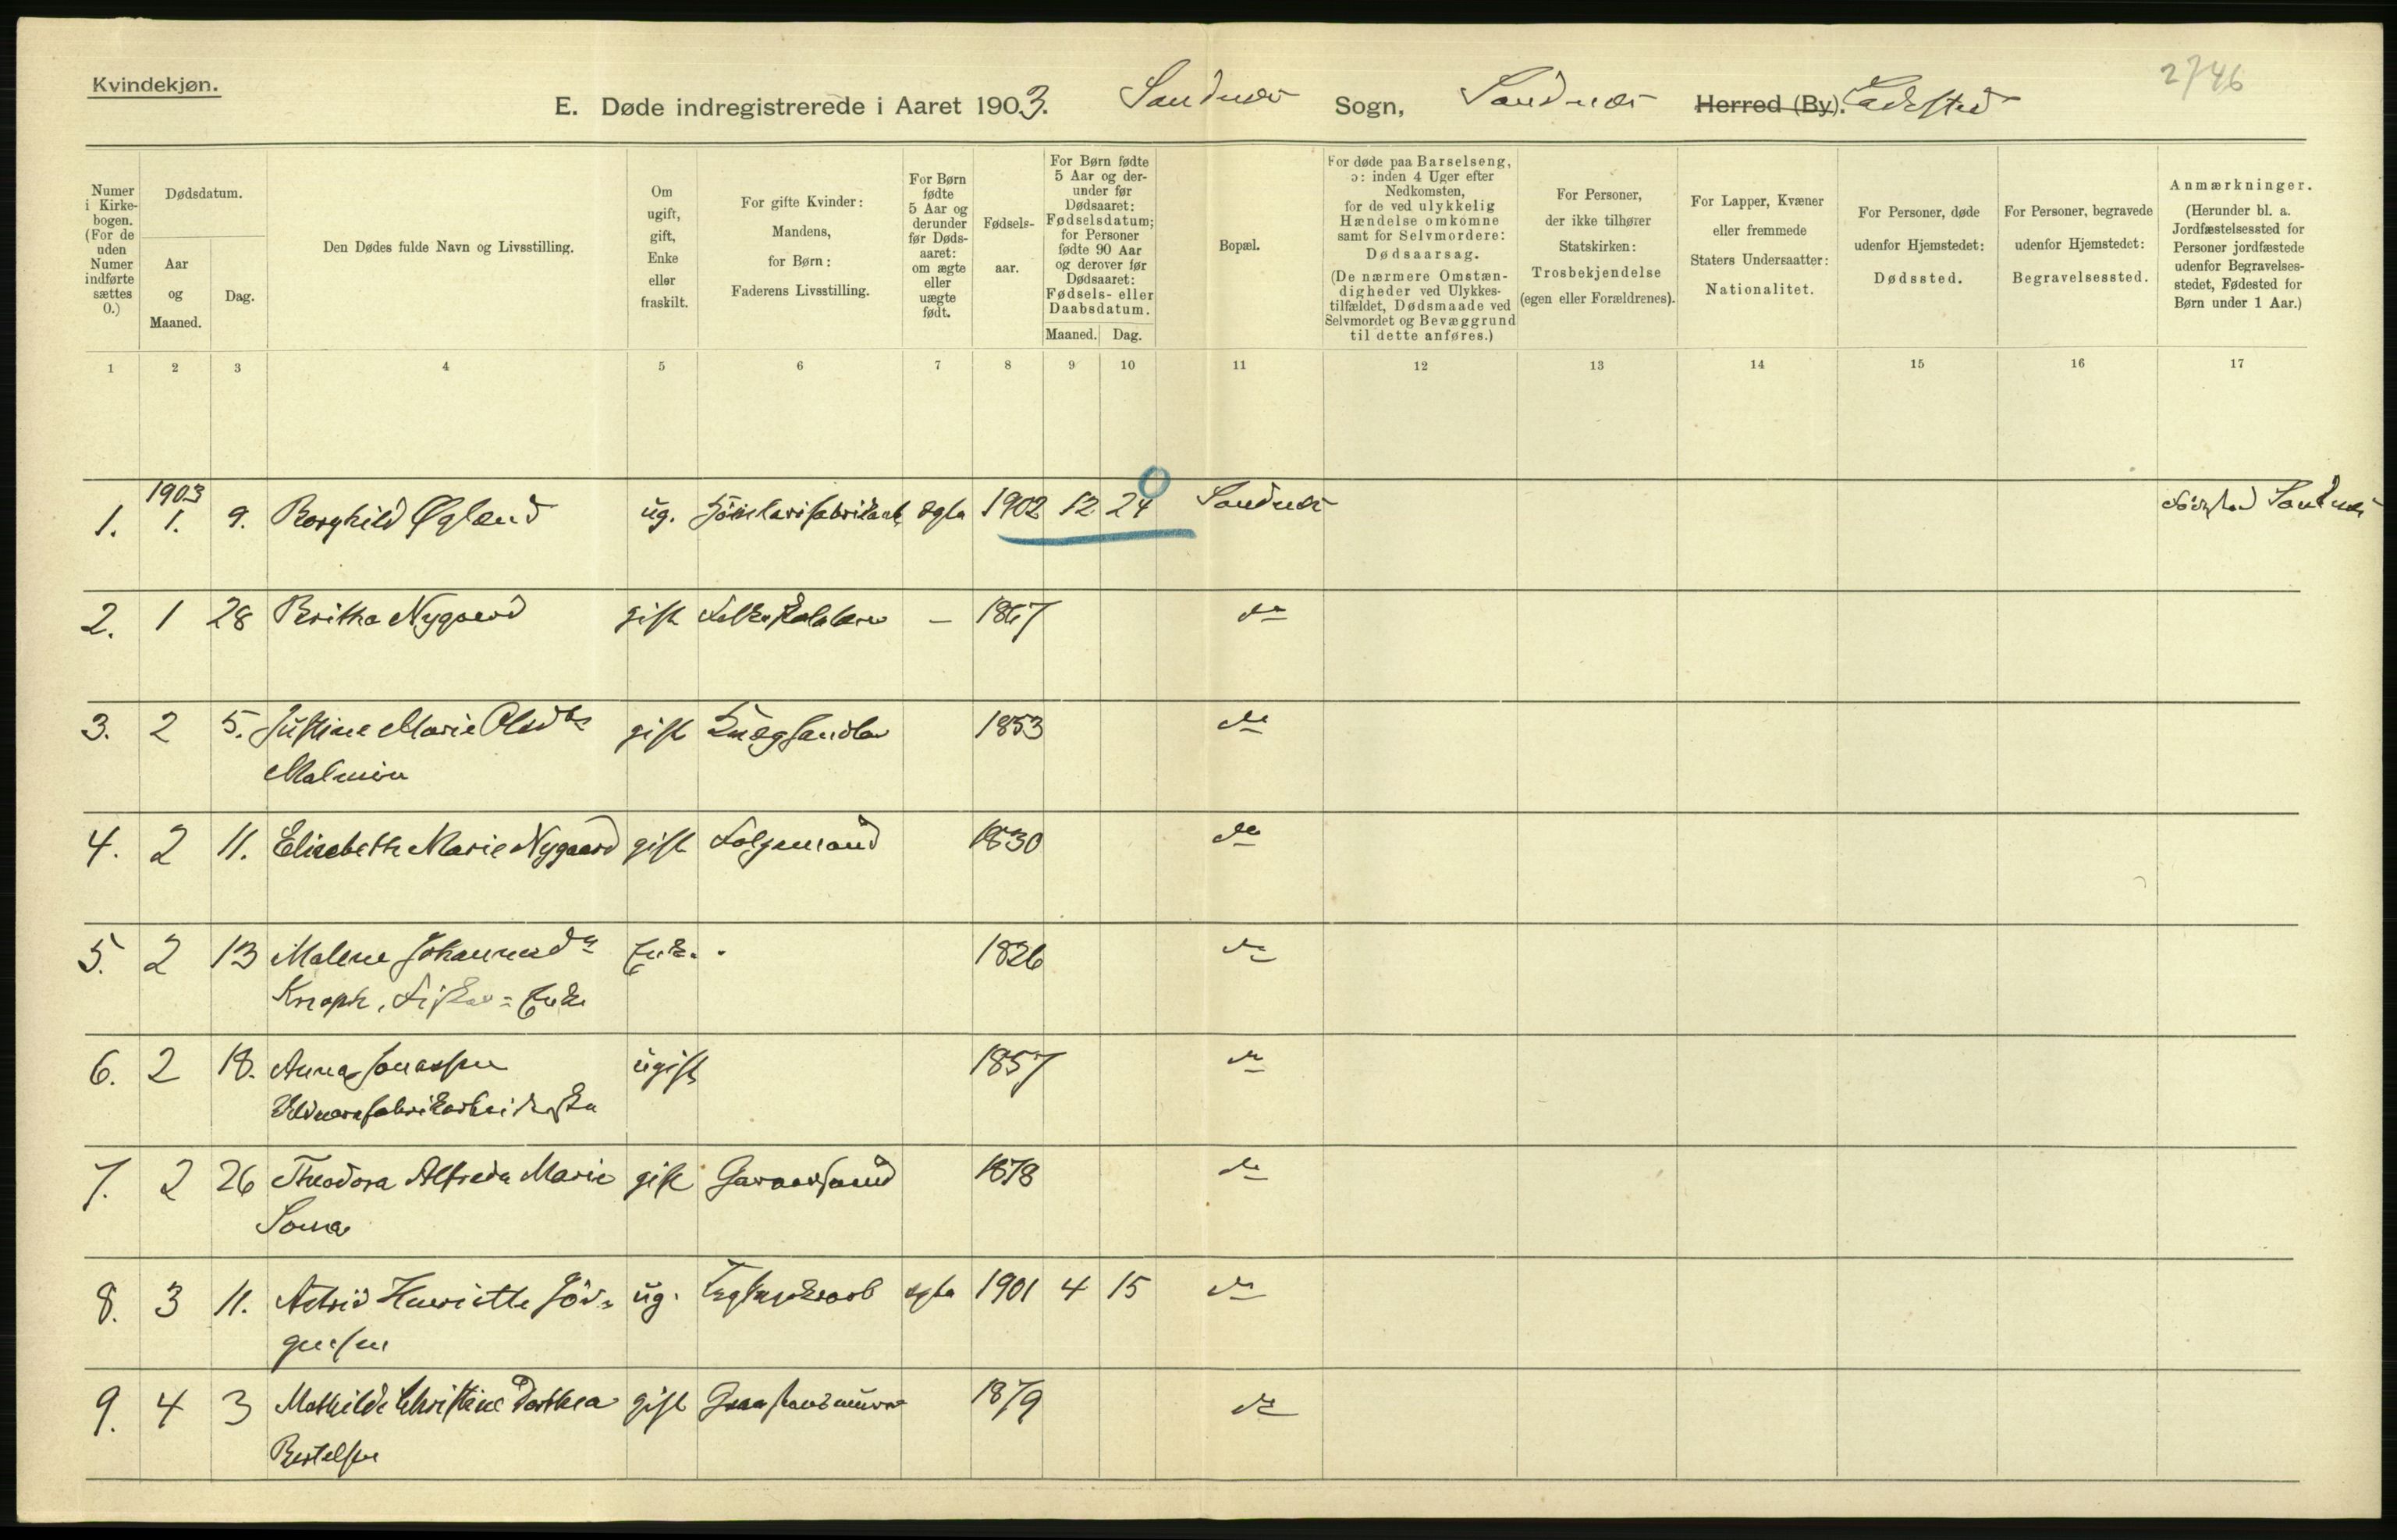 Kvindekjøn.
2746
E. Døde indregistrerede i Aaret 1903. Sandnæs Sogn, Sandnæs Herred (By). Ladested
Numer i Kirkebogen. (For de uden Numer indførte sættes 0.)
Dødsdatum.
Aar og Maaned.
Dag.
Den Dødes fulde Navn og Livsstilling.
Om ugift, gift, Enke eller fraskilt.
For gifte Kvinder: Mandens, for Børn: Faderens Livsstilling.
For Børn fødte 5 Aar og derunder før Dødsaaret: om ægte eller uægte født.
Fødselsaar.
For Børn fødte 5 Aar og derunder før Dødsaaret: Fødselsdatum; for Personer fødte 90 Aar og derover før Dødsaaret: Fødsels- eller Daabsdatum.
Maaned. Dag.
Bopæl.
For døde paa Barselseng, ɔ: inden 4 Uger efter Nedkomsten, for de ved ulykkelig Hændelse omkomne samt for Selvmordere: Dødsaarsag. (De nærmere Omstændigheder ved Ulykkestilfældet, Dødsmaade ved Selvmordet og Bevæggrund til dette anføres.)
For Personer, der ikke tilhører Statskirken: Trosbekjendelse (egen eller Forældrenes).
For Lapper, Kvæner eller fremmede Staters Undersaatter: Nationalitet.
For Personer, døde udenfor Hjemstedet: Dødssted.
For Personer, begravede udenfor Hjemstedet: Begravelsessted.
Anmærkninger. (Herunder bl. a. Jordfæstelsessted for Personer jordfæstede udenfor Begravelsesstedet, Fødested for Børn under 1 Aar.)
1 2 3 4 5 6 7 8 9 10 11 12 13 14 15 16 17
1903
0
1. 1. 9. Borghild Øgland ug. ægte 1902 12 24 Sandnæs Sandnæs
2. 1 28 Britha Nygaard gift – 1867 do
3. 2 5. Justine Marie Olsdtr gift 1853 do
Malmin
4. 2 11. Elisabeth Marie Nygaard gift Folgemand 1830 do
5. 2 13 Malene Johannesdtr Enke. 1826 do
Knoph, Fisker = Enke
6. 2 18. Anna Jonassen ugift 1857 do
Uldvarefabrikarbeiderske
7. 2 26 Theodora Alfreda Marie gift Gaardmand 1878 do
Soma
8. 3 11. Astrid Henriette Jör= ug. ægte 1901 4 15 do
gensen
9. 4 3 Mathilde Christine Dorthea gift 1879 do
Bertelsen